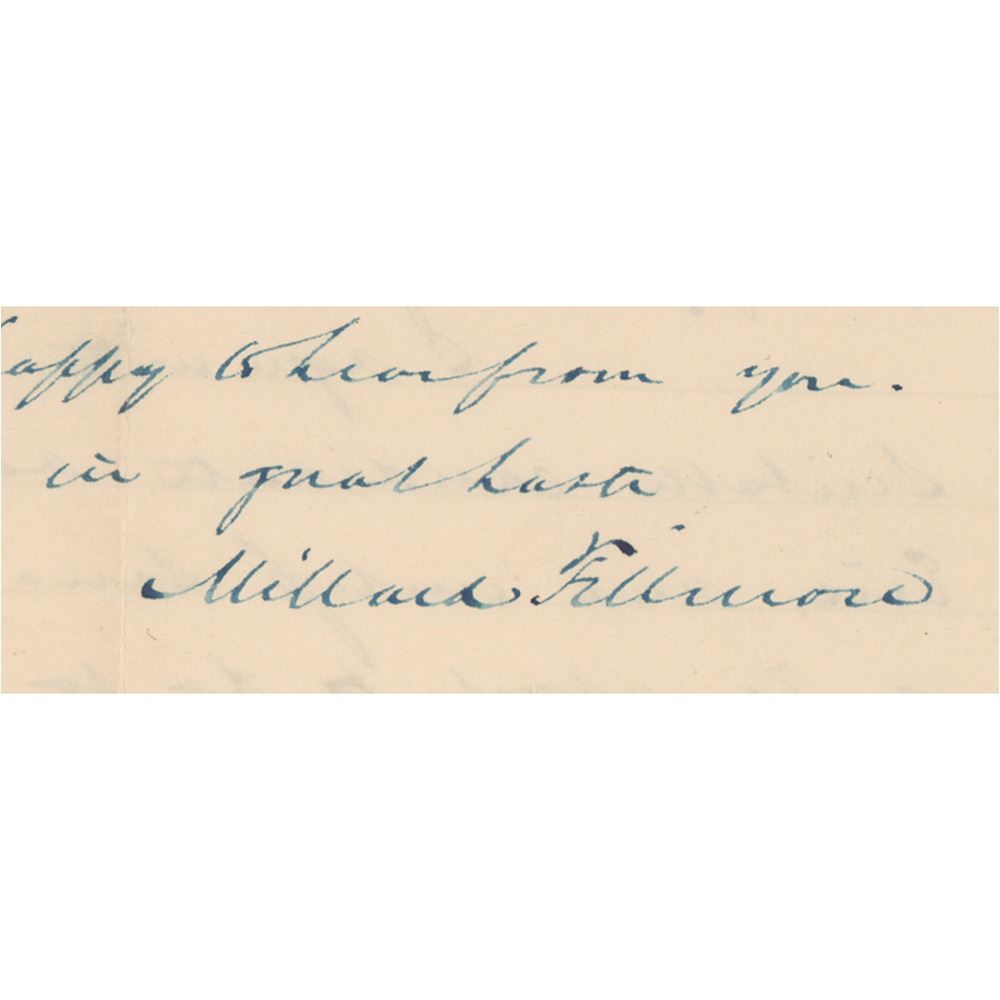 happy to hear from you.
in great haste
Millard Fillmore